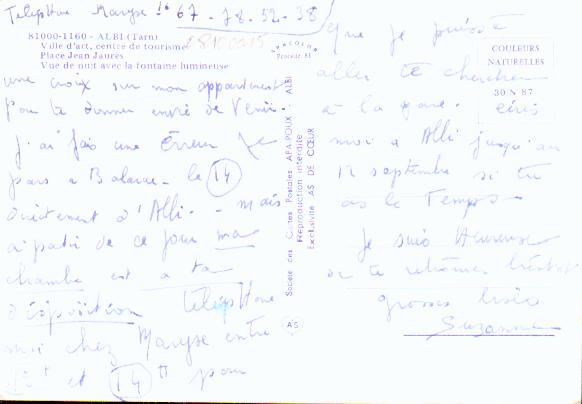 Telephone Maryse 67-78-52-38
81000-1160 - ALBI (Tarn)
Ville d'art, centre de tourisme
Place Jean Jaurès
Vue de nuit avec la fontaine lumineuse
une croix sur mon appartement
pour te donner envie de venir.
J'ai fais une Erreur Je
pars a Balaruc - le 14
Directement d'Albi. - mais
a partir de ce jour ma
chambre est a ta
Disposition telepHone
moi chez Maryse entre
et 14 H pour
APACOLOR
Procédé 81
Société des Cartes Postales APA-POUX - ALBI
Reproduction interdite
Exclusivité AS DE CŒUR
AS
COULEURS
NATURELLES
30 N 87
que je puisse
aller te chercher
à la gare.
moi a Albi jusqu'au
12 septembre si tu
as le Temps
Je suis Heureuse
de te bientot
grosses bises
Suzanne